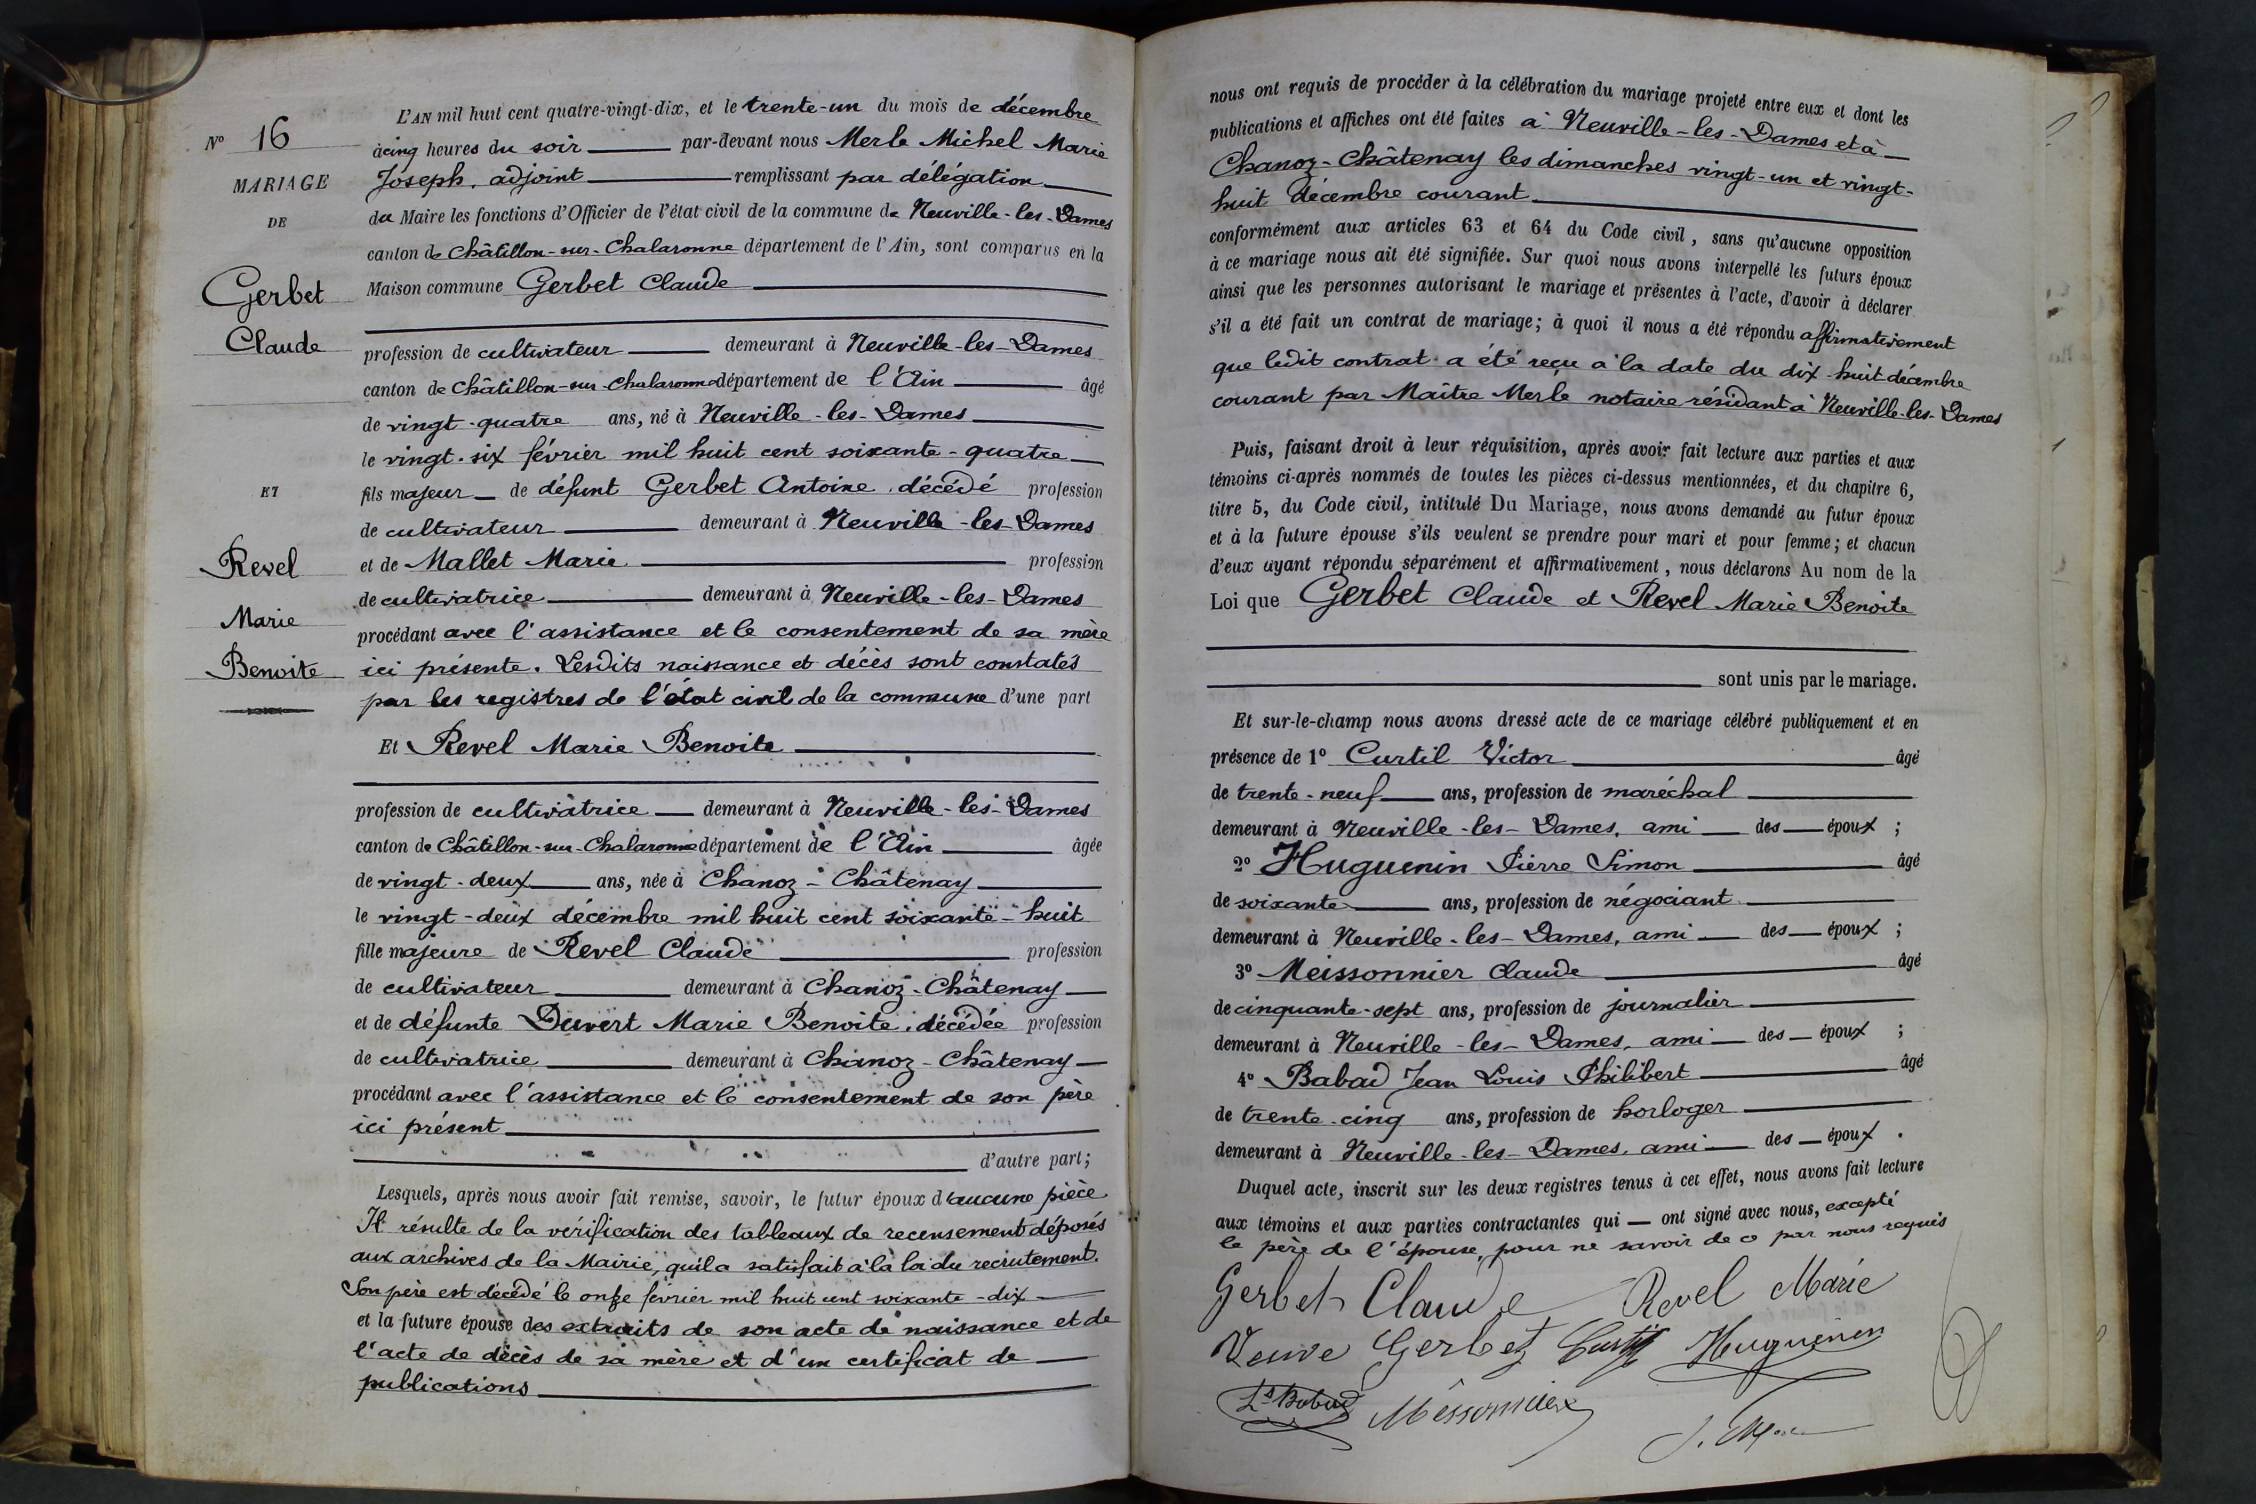 N° 16
MARIAGE
DE
Gerbet
Claude
ET
Revel
Marie
Benoite
L'AN mil huit cent quatre-vingt-dix, et le trente-un du mois de décembre
à cinq heures du soir par-devant nous Merle Michel Marie
Joseph, adjoint remplissant par délégation
du Maire les fonctions d'Officier de l'état civil de la commune de Neuville-les-Dames
canton de Châtillon-sur-Chalaronne département de l'Ain, sont comparus en la
Maison commune Gerbet Claude
profession de cultivateur demeurant à Neuville-les-Dames
canton de Châtillon-sur-Chalaronne département de l'Ain âgé
de vingt-quatre ans, né à Neuville-les-Dames
le vingt-six février mil huit cent soixante-quatre
fils majeur de défunt Gerbet Antoine, décédé profession
de cultivateur demeurant à Neuville-les-Dames
et de Mallet Marie profession
de cultivatrice demeurant à Neuville-les-Dames
procédant avec l'assistance et le consentement de sa mère
ici présente. Lesdits naissance et décès sont constatés
par les registres de l'état civil de la commune d'une part
Et Revel Marie Benoite
profession de cultivatrice demeurant à Neuville-les-Dames
canton de Châtillon-sur-Chalaronne département de l'Ain âgée
de vingt-deux ans, née à Chanoz-Châtenay
le vingt-deux décembre mil huit cent soixante-huit
fille majeure de Revel Claude profession
de cultivateur demeurant à Chanoz-Châtenay
et de défunte Duvert Marie Benoite, décédée profession
de cultivatrice demeurant à Chanoz-Châtenay
procédant avec l'assistance et le consentement de son père
ici présent
d'autre part;
Lesquels, après nous avoir fait remise, savoir, le futur époux d'aucune pièce
Il résulte de la vérification des tableaux de recensement déposés
aux archives de la Mairie, qu'il a satisfait à la loi du recrutement.
Son père est décédé le onze février mil huit cent soixante-dix
et la future épouse des extraits de son acte de naissance et de
l'acte de décès de sa mère et d'un certificat de
publications
nous ont requis de procéder à la célébration du mariage projeté entre eux et dont les
publications et affiches ont été faites à Neuville-les-Dames et à
Chanoz-Châtenay les dimanches vingt-un et vingt-
huit décembre courant
conformément aux articles 63 et 64 du Code civil, sans qu'aucune opposition
à ce mariage nous ait été signifiée. Sur quoi nous avons interpellé les futurs époux
ainsi que les personnes autorisant le mariage et présentes à l'acte, d'avoir à déclarer
s'il a été fait un contrat de mariage; à quoi il nous a été répondu affirmativement
que ledit contrat a été reçu à la date du dix-huit décembre
courant par Maître Merle notaire résidant à Neuville-les-Dames
Puis, faisant droit à leur réquisition, après avoir fait lecture aux parties et aux
témoins ci-après nommés de toutes les pièces ci-dessus mentionnées, et du chapitre 6,
titre 5, du Code civil, intitulé Du Mariage, nous avons demandé au futur époux
et à la future épouse s'ils veulent se prendre pour mari et pour femme; et chacun
d'eux ayant répondu séparément et affirmativement, nous déclarons Au nom de la
Loi que Gerbet Claude et Revel Marie Benoite
sont unis par le mariage.
Et sur-le-champ nous avons dressé acte de ce mariage célébré publiquement et en
présence de 1° Curtil Victor âgé
de trente-neuf ans, profession de maréchal
demeurant à Neuville-les-Dames, ami des époux ;
2° Huguenin Pierre Simon âgé
de soixante ans, profession de négociant
demeurant à Neuville-les-Dames, ami des époux ;
3° Meissonnier Claude âgé
de cinquante-sept ans, profession de journalier
demeurant à Neuville-les-Dames, ami des époux ;
4° Babad Jean Louis Philibert âgé
de trente-cinq ans, profession de horloger
demeurant à Neuville-les-Dames, ami des époux .
Duquel acte, inscrit sur les deux registres tenus à cet effet, nous avons fait lecture
aux témoins et aux parties contractantes qui ont signé avec nous, excepté
le père de l'épouse, pour ne savoir de ce par nous requis
Gerbet Claude Revel Marie
Veuve Gerbet Curtil Huguenin
Ls Babad Mêssonnier